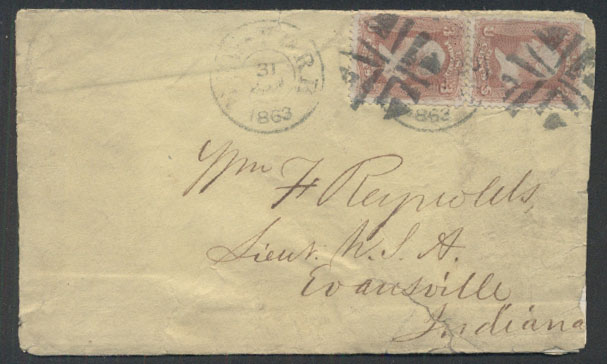 NEW-YORK
31
1863
1863
Wm F Reynolds,
Lieut. U.S.A.
Evansville
Indiana